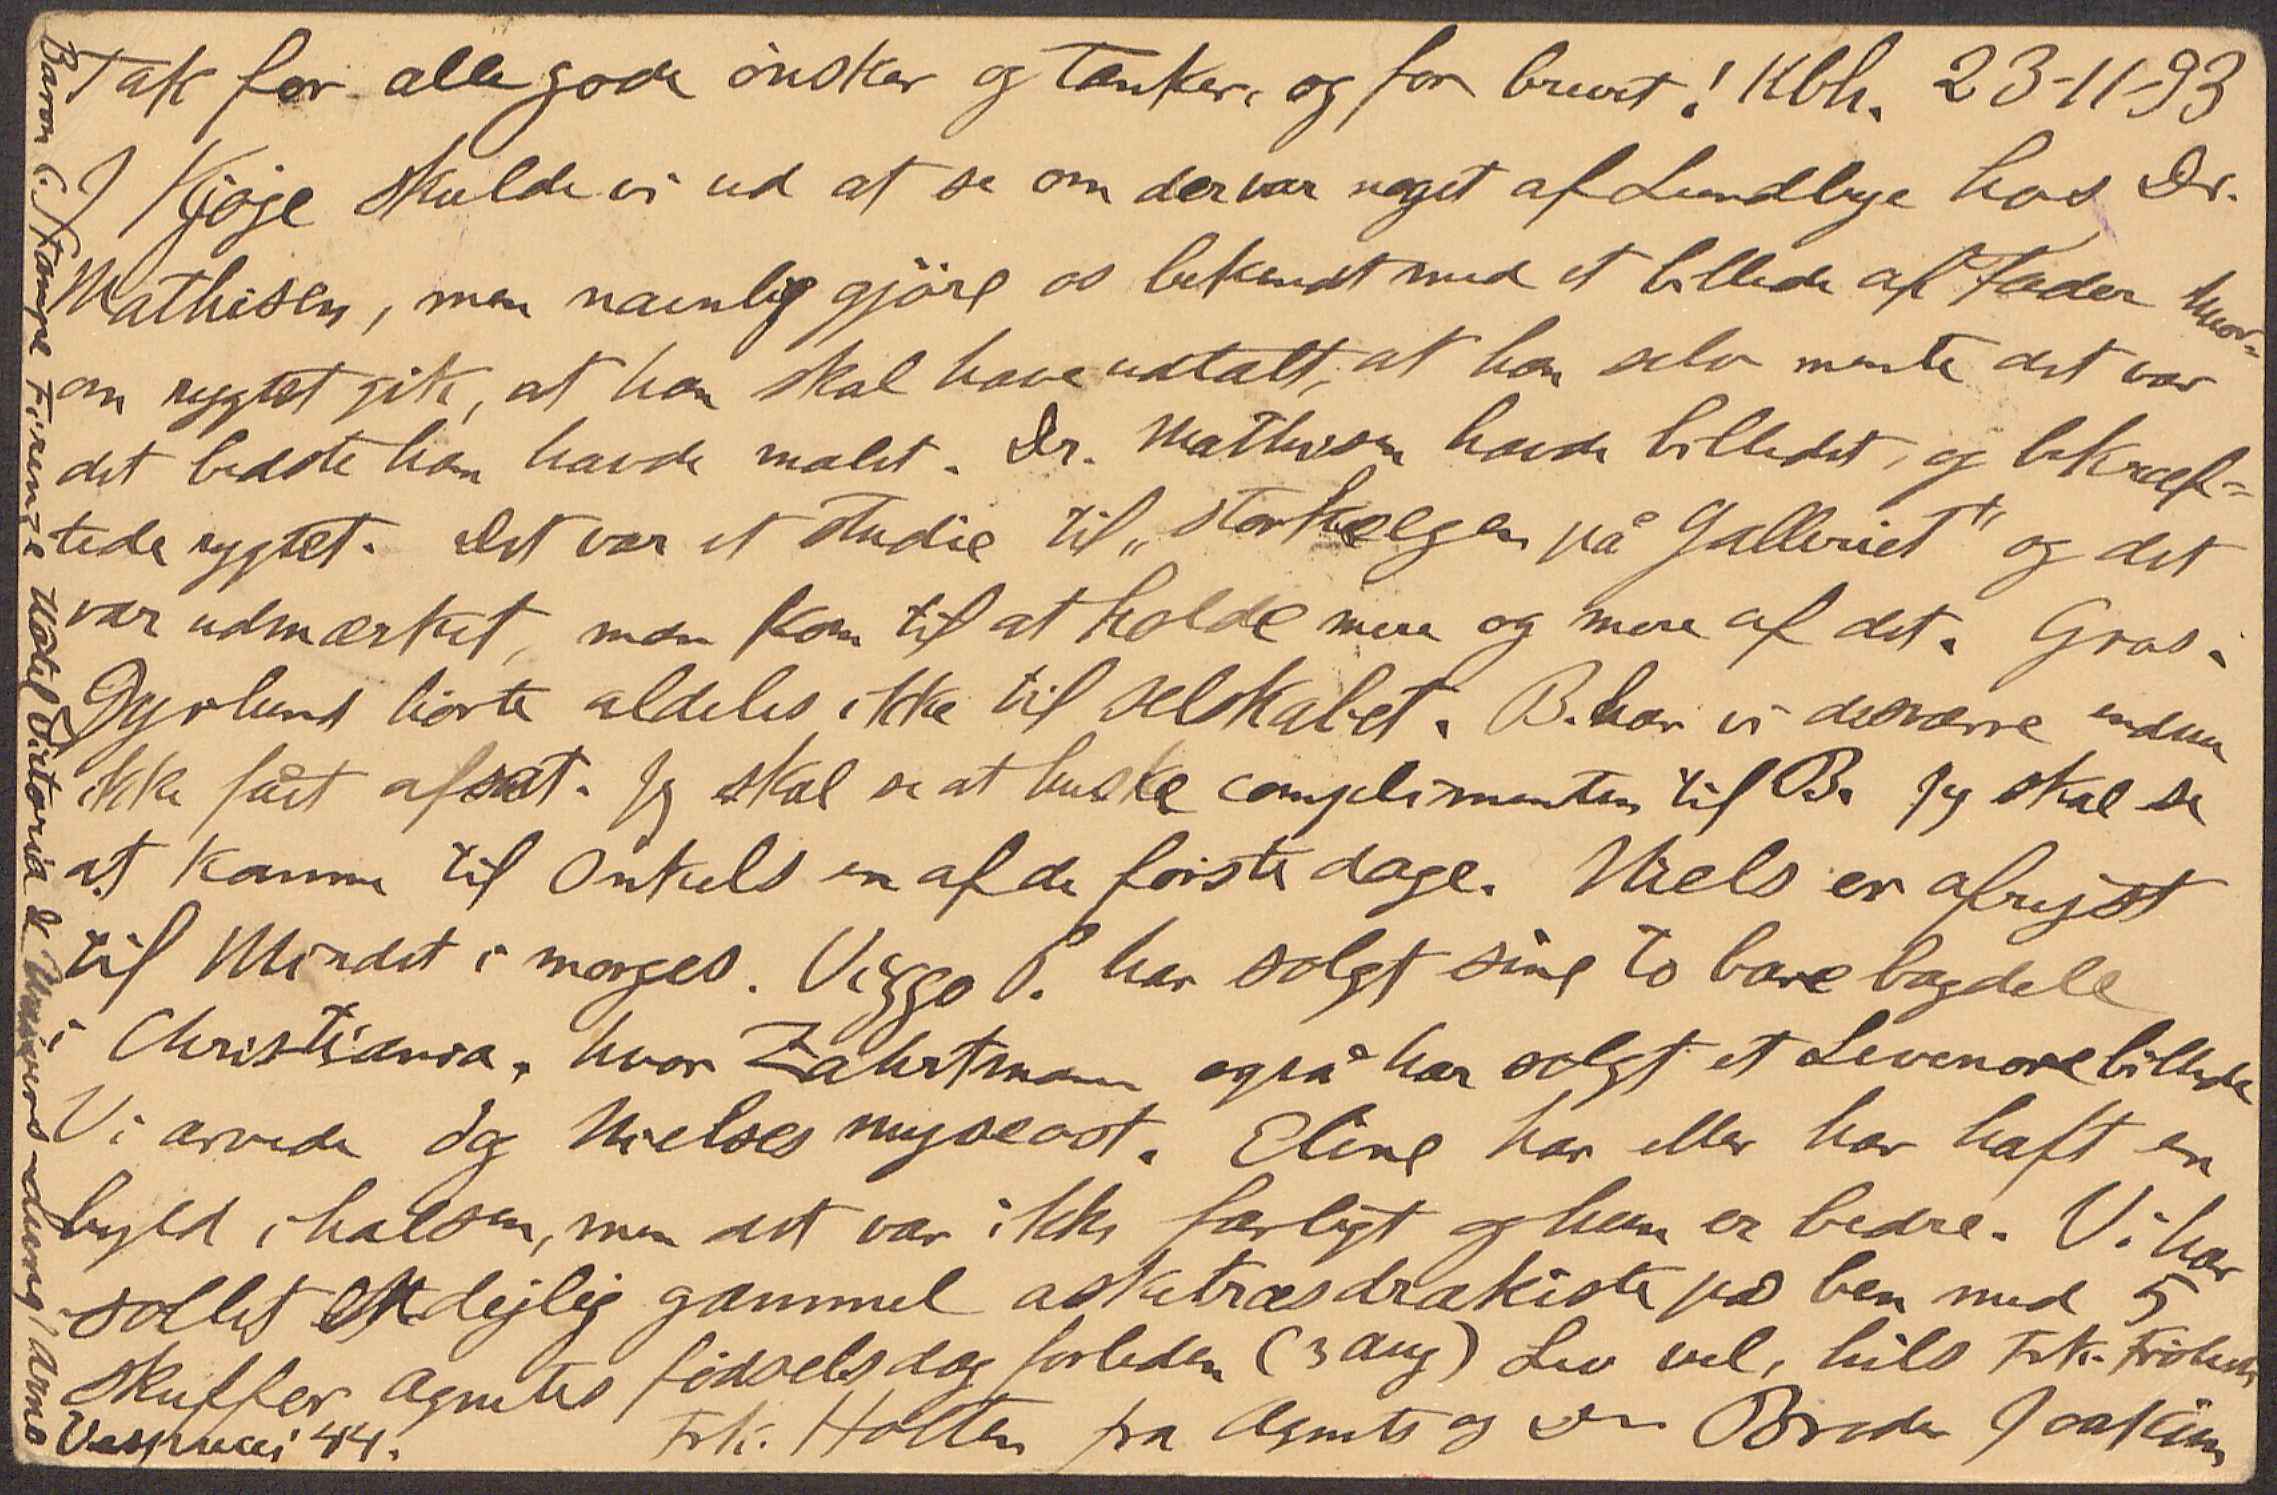 Tak for alle gode önsker og tanker, og for brevet! Kbh. 23-11-93
I Kjöje skulde vi ud at se om der var noget af Lundbye hos Dr.
Mathisen, men navnlig gjöre os bekendt med et billede af Fader hvor=
om rygtet gik, at han skal have udtalt, at han selv mente det var
det bedste han havde malet. Dr. Mathisen havde billedet, og bekræf=
tede rygtet. Det var et studie til „Störkelgen på Galleriet" og det
var udmærket, man kom til at holde mere og mere af det. Gros.
Dyrlund hörte aldeles ikke til selskabet. B. har vi desværre endnu
ikke fået afsat. Jeg skal se at huske complimenten til B. Jeg skal se
at komme til Onkels en af de förste dage. Niels er afrejst
til Mindet i morges. Viggo P. har solgt sine to bare bagdele
i Christiania, hvor Zahrtmann også har solgt et Leonorebillede
Vi arvede dog Nielses myseost. Eline har eller har haft en
byld i halsen, men det var ikke farligt og hun er bedre. Vi har
sollet en dejlig gammel asketræsdrakiste på ben med 5
skuffer Agnetes födselsdag forleden (3 aug) Lev vel, hils Frk. Frölich
Frk. Holten fra Agnete og Din Broder Joakim
Baron C. Stampe Firenze Hotel Victoria Lungarno
Vespucci 44.